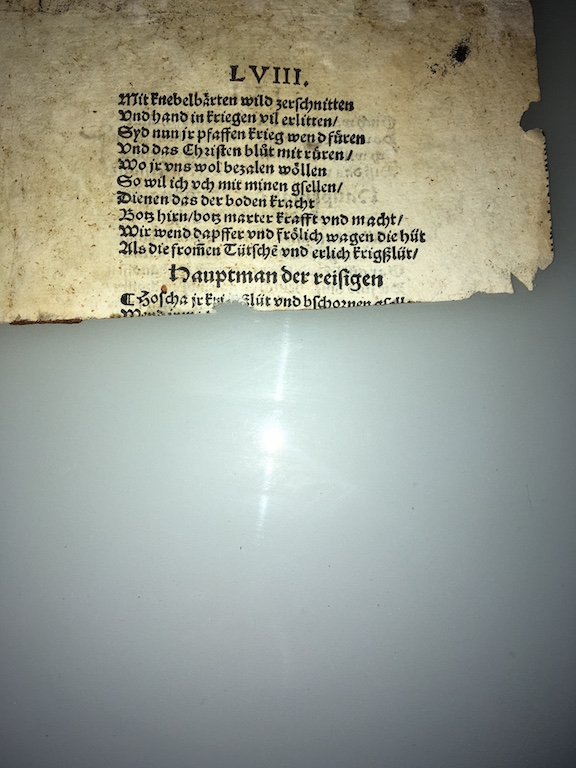 LVIII.
Mit knebelbårten wild zerschnitten
Vnd hand in kriegen vil erlitten/
Syd nun jr pfaffen krieg wend fůren
Vnd das Christen blůt mit růren/
Wo jr vns wol bezalen wöllen
So wil ich vch mit minen gsellen/
Dienen das der boden kracht
Botz hirn/botz marter krafft vnd macht/
Wir wend dapffer vnd frölich wagen die hüt
Als die from̃en Tütschẽ vnd erlich krigßlüt/
Hauptman der reisigen
¶ Zoscha jr vnd bschornen